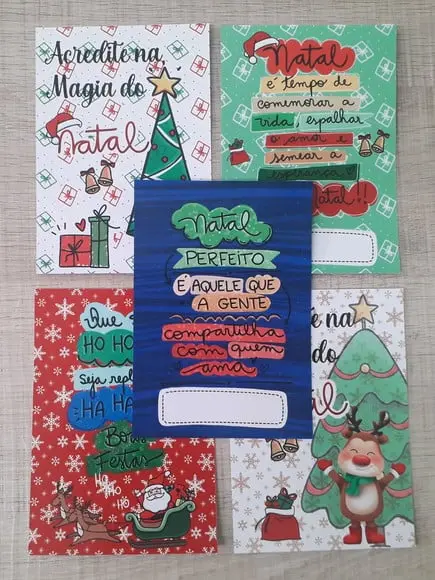 Acredite na
Magia do
Natal
Natal
é tempo de
comemorar a
vida, espalhar
o amor e
semear a
esperança
Natal!!
Natal
PERFEITO
É AQUELE QUE
A GENTE
compartilha
com quem
ama
Que
HO HO
Seja
HA HA
Boas
Festas
HO
HO
HO
e na
do